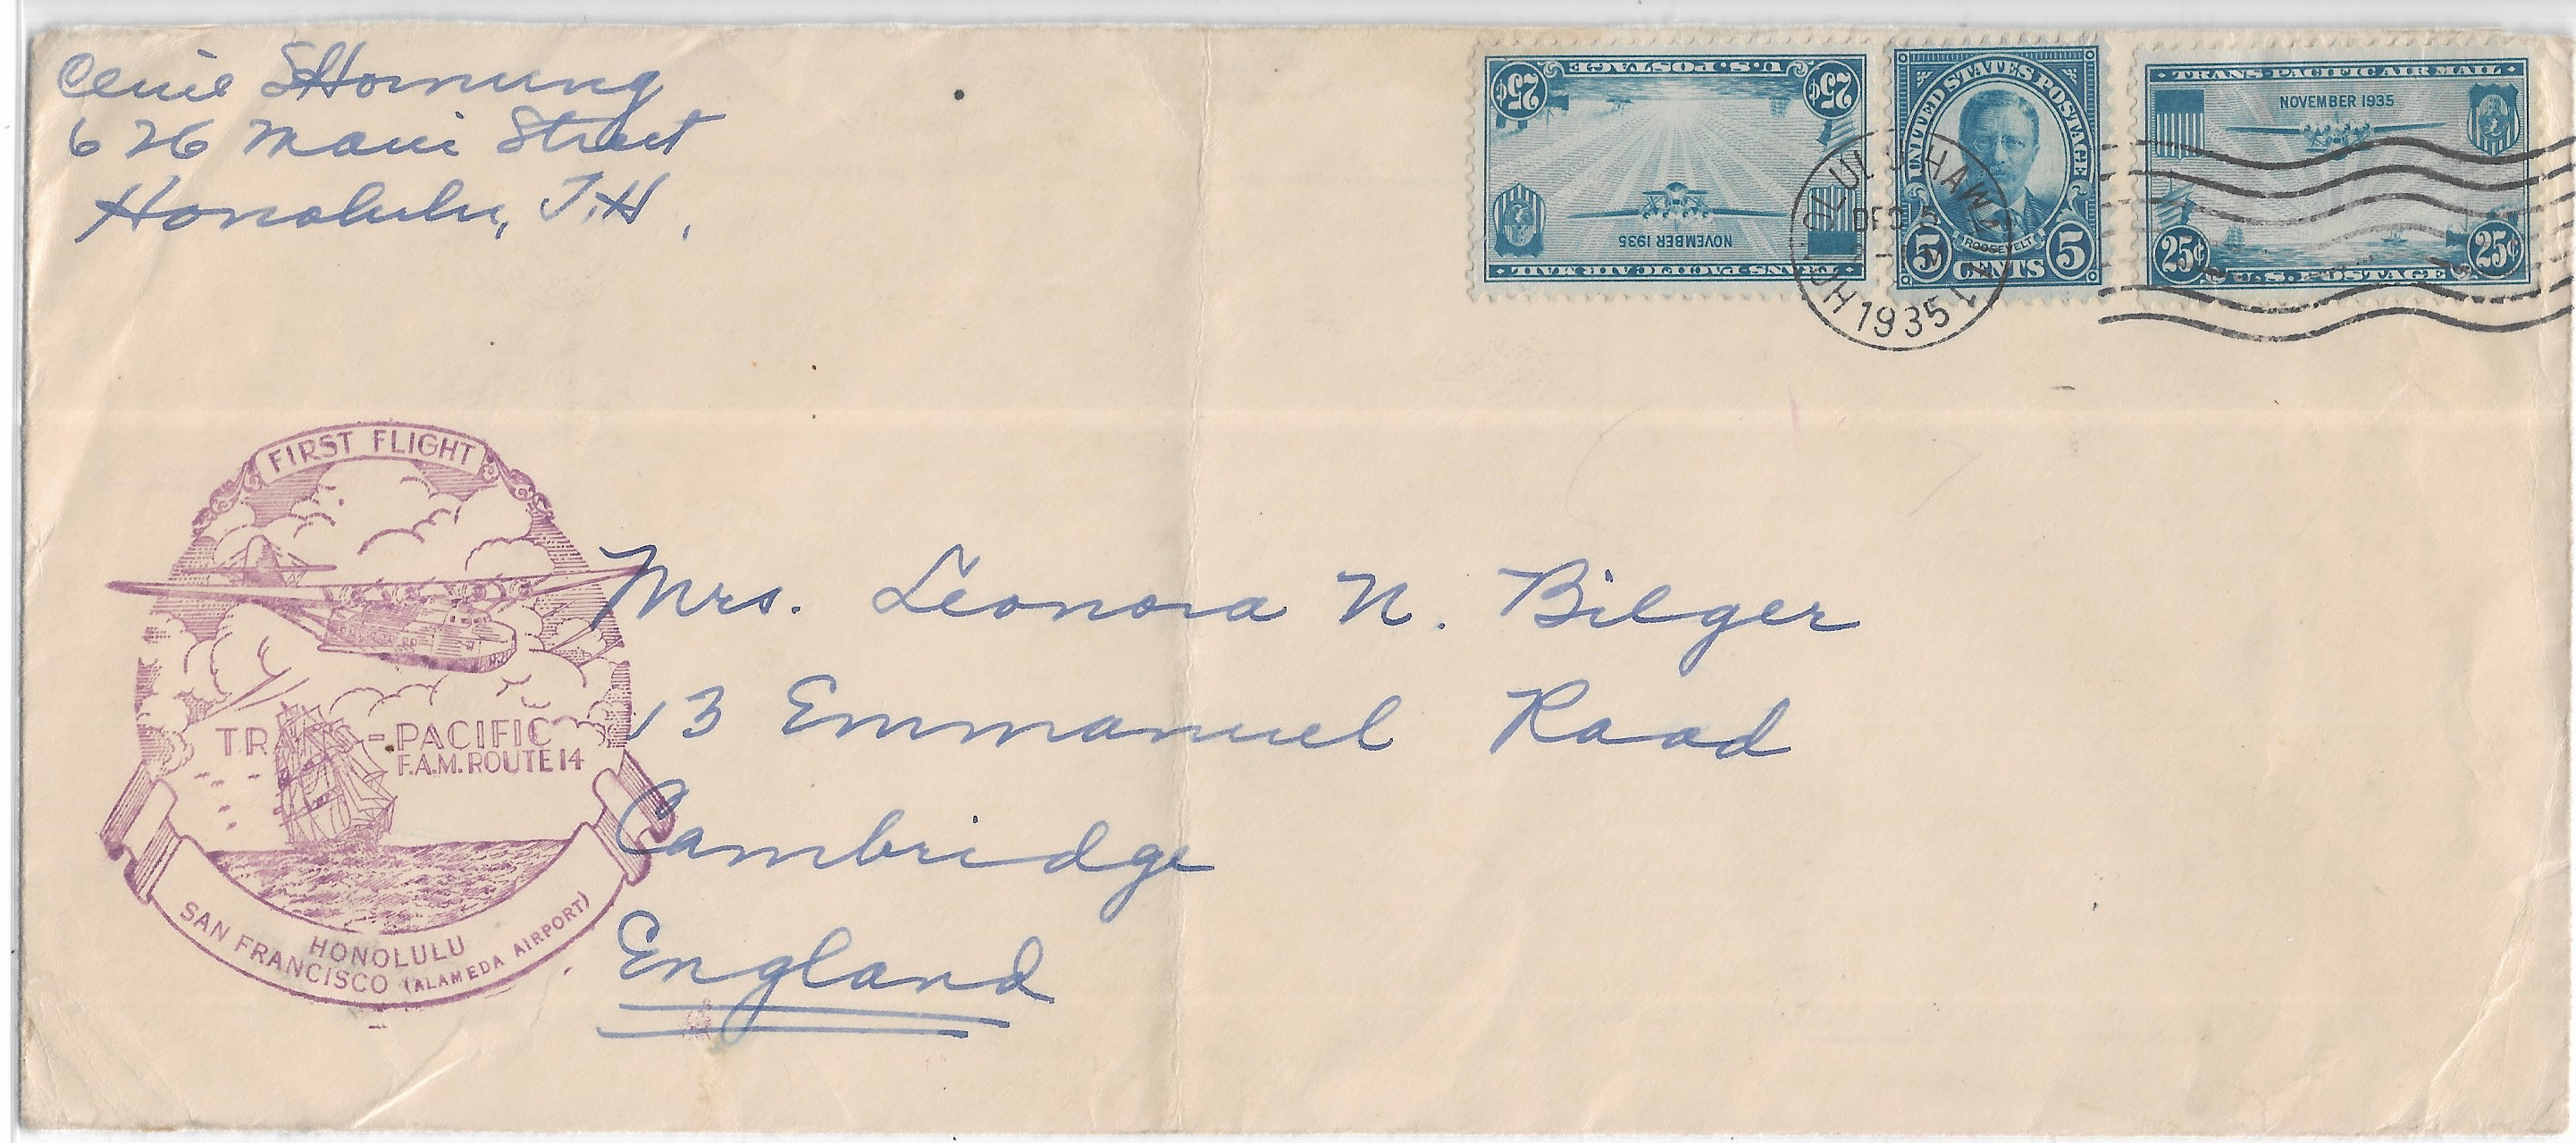 S Hornung
626 Maui Street
Honolulu, T.H.
25¢ U.S. POSTAGE 25¢
NOVEMBER 1935
TRANS-PACIFIC AIR MAIL
UNITED STATES POSTAGE
ROOSEVELT
5 CENTS 5
TRANS-PACIFIC AIR MAIL
NOVEMBER 1935
25¢ U.S. POSTAGE 25¢
HAW
DEC
1935
FIRST FLIGHT
TRANS-PACIFIC
F.A.M. ROUTE 14
HONOLULU
SAN FRANCISCO (ALAMEDA AIRPORT)
Mrs. Leonora N. Bilger
13 Emmanuel Road
Cambridge
England